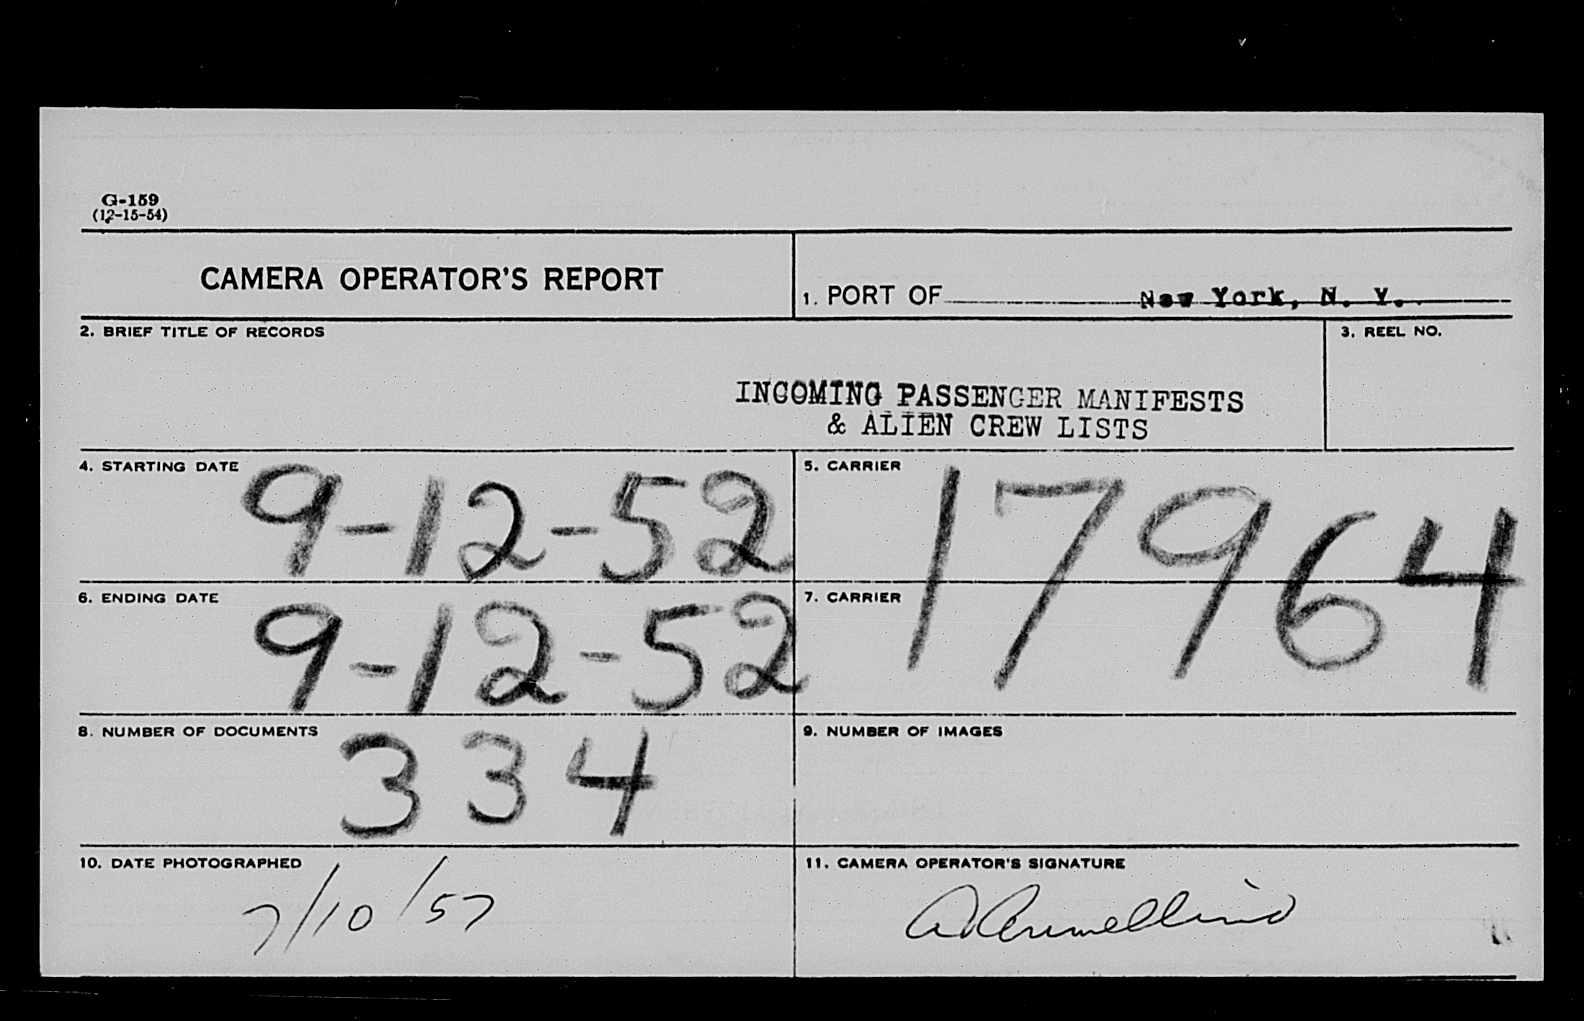 G-159
(12-15-54)
CAMERA OPERATOR'S REPORT
1. PORT OF New York, N. Y.
2. BRIEF TITLE OF RECORDS
3. REEL NO.
INCOMING PASSENGER MANIFESTS
& ALIEN CREW LISTS
4. STARTING DATE 9-12-52
5. CARRIER 17964
6. ENDING DATE 9-12-52
7. CARRIER
8. NUMBER OF DOCUMENTS 334
9. NUMBER OF IMAGES
10. DATE PHOTOGRAPHED 7/10/57
11. CAMERA OPERATOR'S SIGNATURE